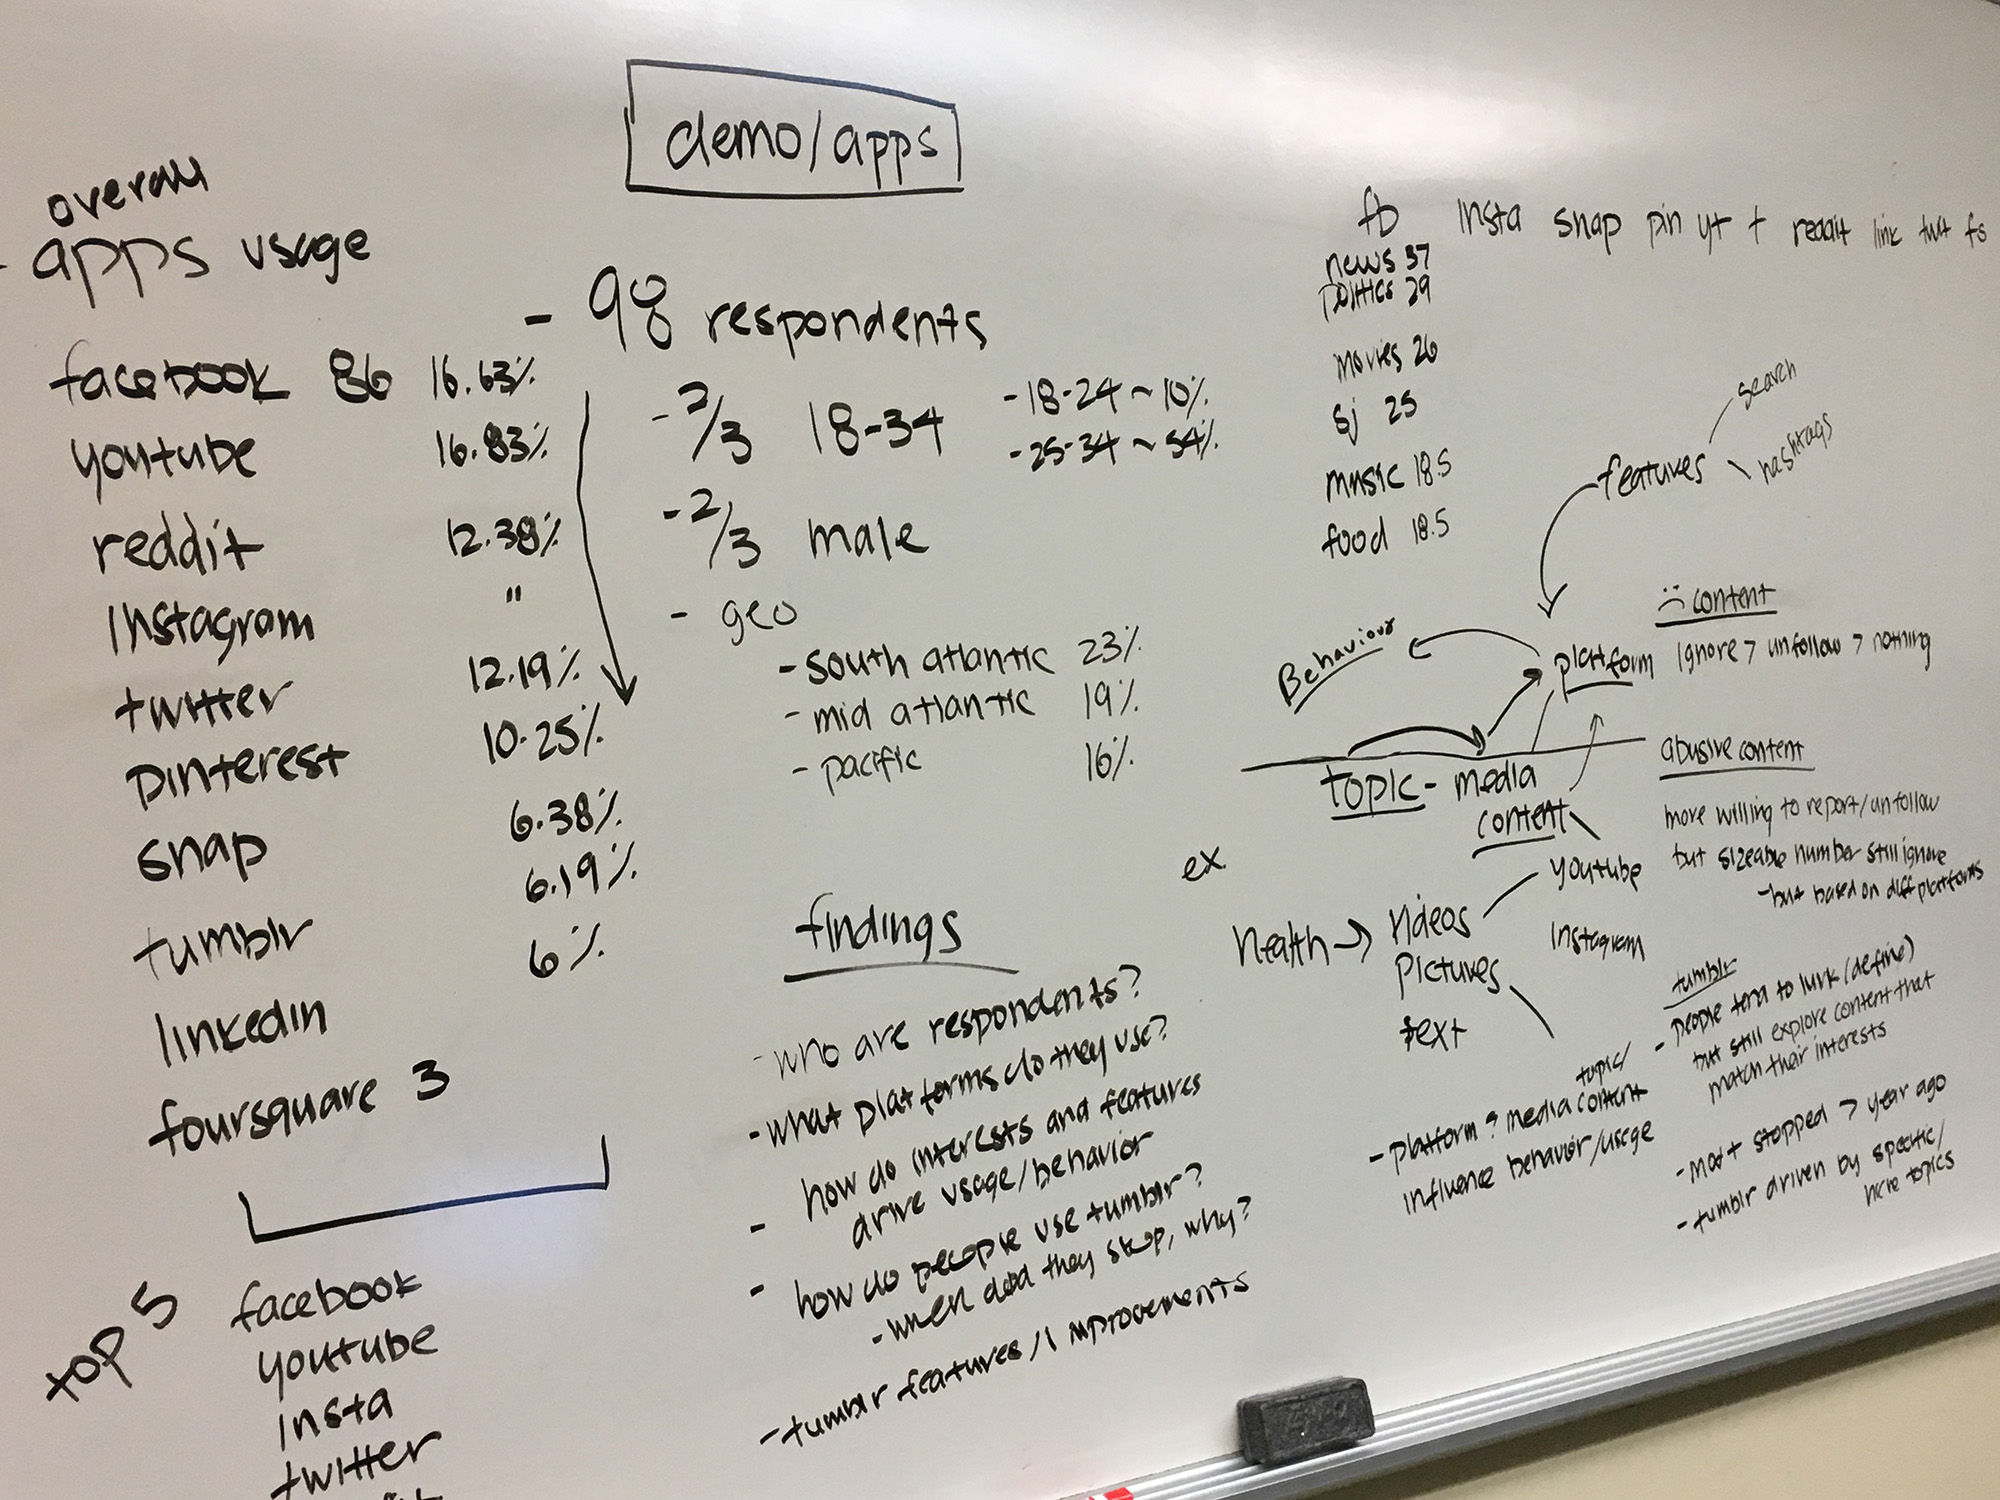 demo/apps
overall
- apps usage
facebook 86 16.63%
youtube 16.83%
reddit 12.38%
Instagram "
twitter 12.19%
pinterest 10.25%
snap 6.38%
tumblr 6.19%
linkedin 6%
foursquare 3
top 5
facebook
youtube
insta
twitter
- 98 respondents
- 2/3 18-34
- 18-24 ~ 10%
- 25-34 ~ 54%
- 2/3 male
- geo
- south atlantic 23%
- mid atlantic 19%
- pacific 16%
findings
- who are respondents?
- what platforms do they use?
- how do interests and features
drive usage/behavior
- how do people use tumblr?
- when did they stop, why?
- tumblr features/improvements
fb insta snap pin yt t reddit link twt fs
news 37
politics 29
movies 26
sj 25
music 18.5
food 18.5
search
features
hashtags
Behaviour
platform
topic - media
content
ex
health → videos
pictures
text
youtube
Instagram
:( content
ignore > unfollow > nothing
abusive content
more willing to report/unfollow
but sizeable number still ignore
- but based on diff platforms
topic/
- platform & media content
influence behavior/usage
tumblr
- people tend to lurk (define)
but still explore content that
match their interests
- most stopped > year ago
- tumblr driven by specific/
niche topics